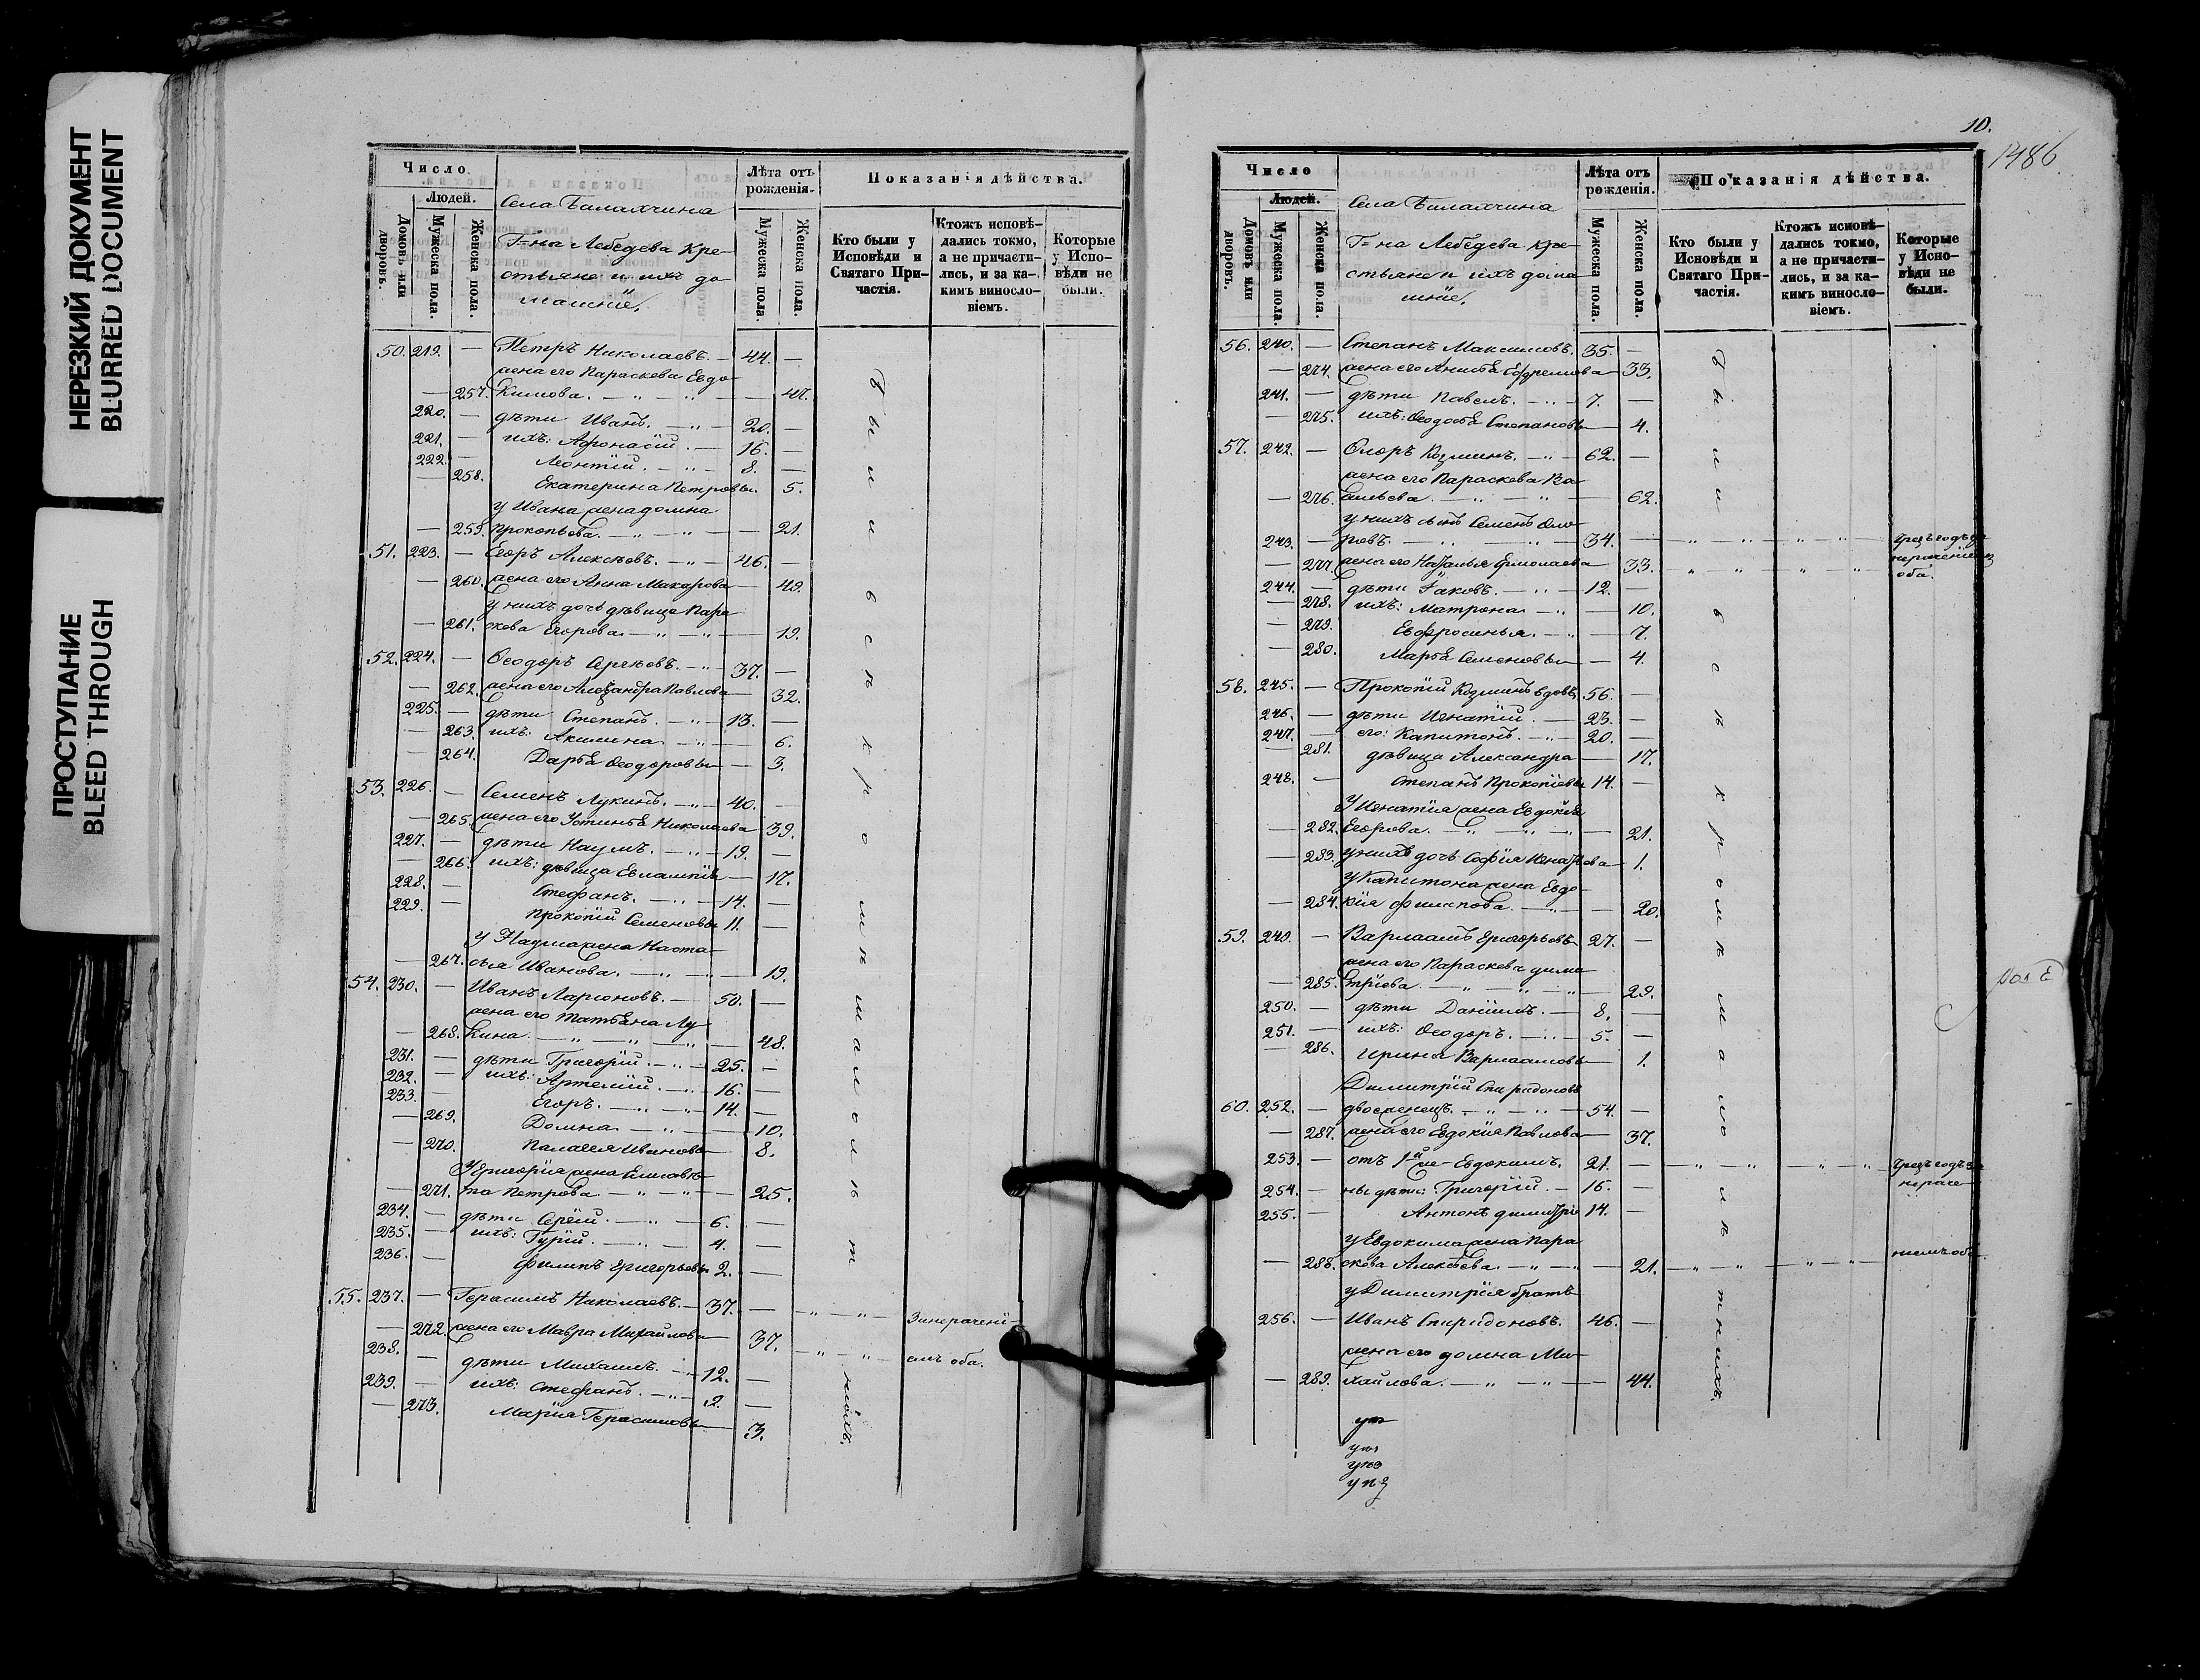 НЕРЕЗКИЙ ДОКУМЕНТ
BLURRED DOCUMENT
ПРОСТУПАНИЕ
BLEED THROUGH
Число
Людей.
Домовъ или дворовъ.
Мужеска пола.
Женска пола.
Села Балахчина
Г=на Лебедева Кре-
стьяне и ихъ до
машніе.
Лѣта отъ рожденія.
Мужеска пола.
Женска пола.
Показанія дѣйства.
Кто были у Исповѣди и Святаго При-частія.
Ктожъ исповѣ-дались токмо, а не причасти-лись, и за ка-кимъ винослo-віемъ.
Которые у Испо-вѣди не были.
50. 219. — Петръ Николаевъ. — 44. —
жена его Параскева Евдо-
— 257. кимова. — „ — „ — — 47.
220. — дѣти Иванъ. — „ — 20. —
221. — ихъ: Афонасій. — 16. —
222. — Леонтій. — „ — 8. —
— 258. Екатерина Петровы. 5.
у Ивана жена Домна
— 259. Прокопьева. — „ — „ — — 21.
51. 223. — Егоръ Алексѣевъ. — „ — 46. —
— 260. жена его Анна Макарова — 49.
у нихъ дочь дѣвица Пара
— 261. скева Егорова. — „ — „ — — 19.
52. 224. — Ѳеодоръ Сергѣевъ. — „ — 37. —
— 262. жена его Александра Павлова — 32.
225. — дѣти Степанъ. — „ — 13. —
— 263. ихъ: Акилина — „ — — 6.
— 264. Дарья Ѳеодоровы — 3.
53. 226. — Семенъ Лукинъ. — „ — 40. —
— 265. жена его Устинья Николаева 39.
227. — дѣти Наумъ. — „ — 19. —
— 266. ихъ: дѣвица Евлампія — 17.
228. — Стефанъ. — „ — 14. —
229. — Прокопій Семеновы 11. —
у Наума жена Наста-
— 267. сья Иванова. — „ — „ — 19.
54. 230. — Иванъ Ларіоновъ. — 50. —
жена его Татьяна Лу
— 268. кина. — „ — „ — „ — 48.
231. — дѣти Григорій. — „ — 25. —
232. — ихъ: Артемій. — „ — 16. —
233. — Егоръ. — „ — „ — 14. —
— 269. Домна. — „ — — 10.
— 270. Палагея Ивановы — 8.
У Григорія жена Елисаве-
— 271. та Петрова — „ — „ — — 25.
234. — дѣти Сергій. — „ — 6. —
235. — ихъ: Гурій. — „ — 4. —
236. — Филипъ Григорьевы 2. —
55. 237. — Герасимъ Николаевъ. — 37. — „ — „ — За нерачені-
— 272. жена его Мавра Михайлова — 37. — „ — „ — емъ оба.
238. — дѣти Михаилъ. — „ — 12. —
239. — ихъ: Стефанъ. — „ — 9. —
— 273. Марія Герасимовы — 3.
Были всѣ кромѣ малолѣтнихъ.
10.
1486
Число
Людей.
Домовъ или дворовъ.
Мужеска пола.
Женска пола.
Села Балахчина
Г=на Лебедева кре-
стьяне и ихъ дома
шніе.
Лѣта отъ рожденія.
Мужеска пола.
Женска пола.
Показанія дѣйства.
Кто были у Исповѣди и Святаго При-частія.
Ктожъ исповѣ-дались токмо, а не причасти-лись, и за ка-кимъ виносло-віемъ.
Которые у Испо-вѣди не были.
56. 240. — Степанъ Максимовъ. 35. —
— 274. жена его Анисья Ефремова — 33.
241. — дѣти Павелъ. — „ — 7. —
— 275. ихъ: Ѳеодосья Степановы — 4.
57. 242. — Флоръ Козминъ. — „ — 62. —
жена его Параскева Ва
— 276. сильева. — „ — „ — 62.
у нихъ сынъ Семенъ Фло
243. — ровъ. — „ — „ — 34. — „ — „ — „ — „ — Чрезъ годъ за
— 277. жена его Наталья Ермолаева — 33. „ „ „ „ нераченіемъ
оба.
244. — дѣти Іаковъ. — „ — 12. —
— 278. ихъ: Матрона. — „ — 10.
— 279. Евфросинья. — „ — 7.
— 280. Марья Семеновы — 4.
58. 245. — Прокопій Козминъ вдовъ 56. —
246. — дѣти Игнатій. — 23. —
247. — его: Капитонъ. — „ — 20. —
— 281. дѣвица Александра — 17.
248. — Степанъ Прокопіевы 14. —
У Игнатія жена Евдокія
— 282. Егорова. — „ — „ — „ — 21.
— 283. у нихъ дочь Софія Игнатьева 1.
у Капитона жена Евдо-
— 284. кія Филипова. — „ — — 20.
59. 249. — Варлаамъ Григорьевъ 27. —
жена его Параскева Дими
— 285. тріева. — „ — „ — „ — 29.
250. — дѣти Даніилъ. — 8. —
251. — ихъ: Ѳеодоръ. — „ — 5. —
— 286. Ирина Варлаамовы — 1.
Димитрій Спиридоновъ
60. 252. — двоеженецъ. — „ — „ — 54. —
— 287. жена его Евдокія Павлова — 37.
253. — отъ 1й же- Евдокимъ. 21. — „ — „ — „ — „ — Чрезъ годъ за
нераче-
254. — ны дѣти: Григорій. — 16. —
255. — Антонъ Димитріе 14. —
у Евдокима жена Пара
— 288. скева Алексѣева. — „ — „ — 21. — „ — „ — „ — „ — ніемъ оба
у Димитрія братъ
256. — Иванъ Спиридоновъ. 46. —
жена его Домна Ми-
— 289. хайлова. — „ — „ — — 44.
Были всѣ кромѣ малолѣтнихъ.